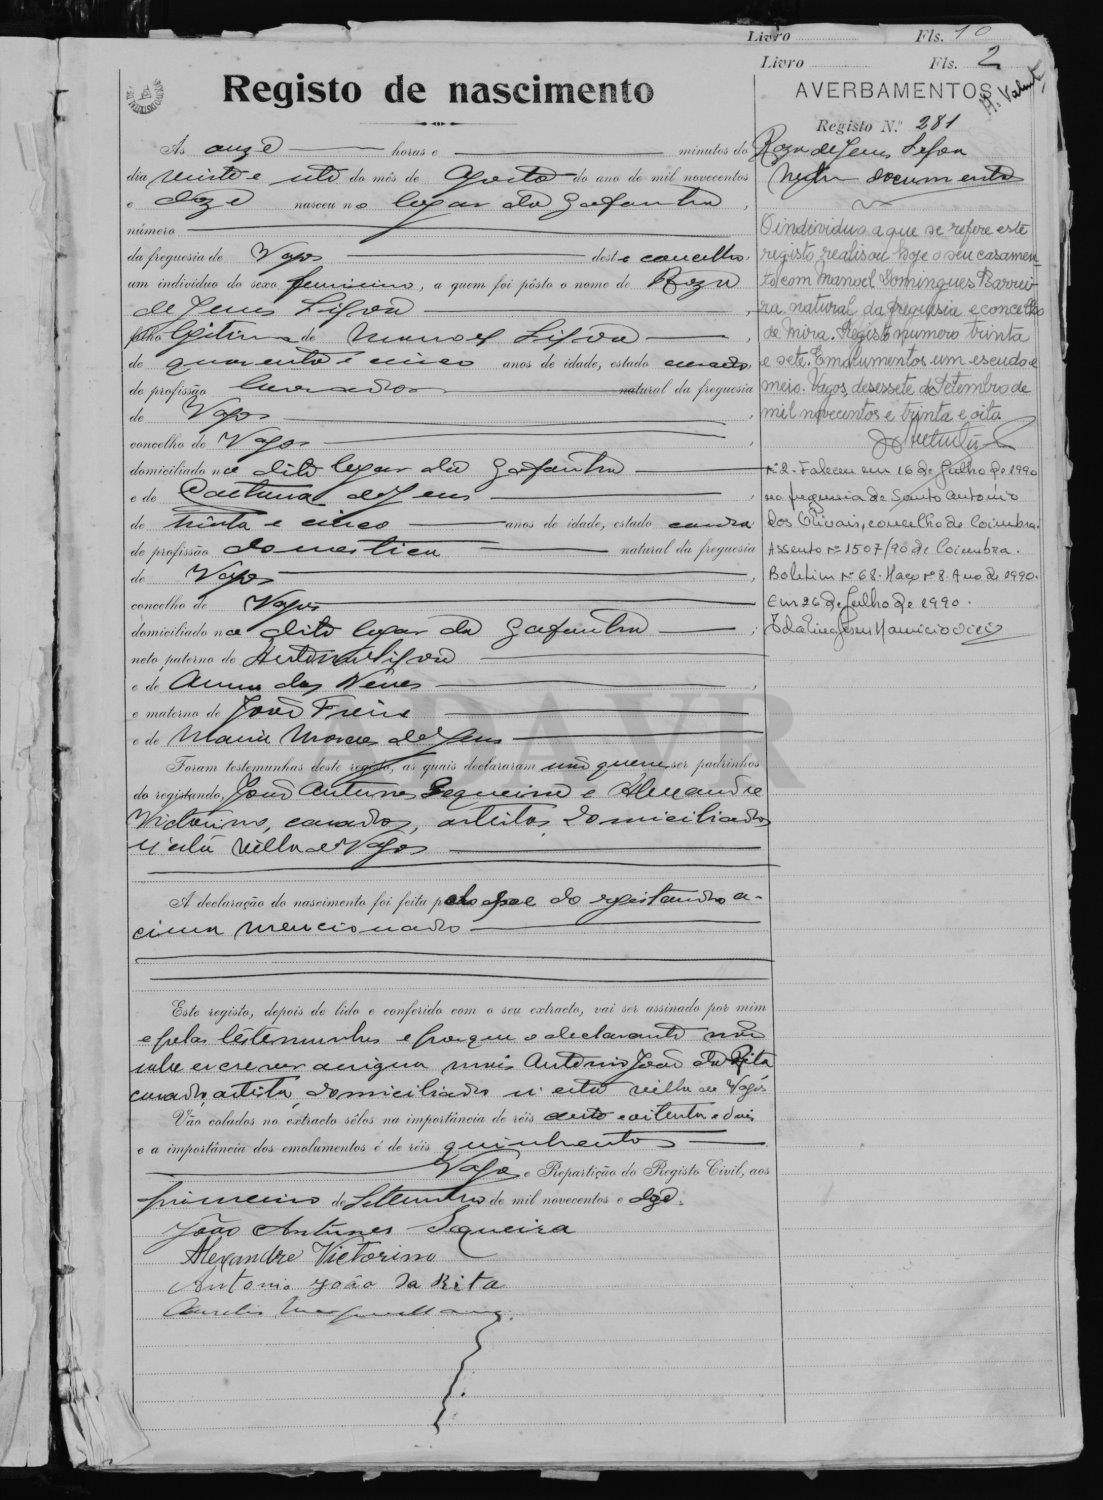 Livro Fls. 10
Livro Fls. 2
Registo de nascimento
AVERBAMENTOS
Registo N.º 281
Ás onze horas e minutos do
dia vinte e oito do mês de Agosto do ano de mil novecentos
e doze nasceu no logar da Gafanha,
número
da freguesia de Vagos deste concelho,
um indivíduo do sexo feminino, a quem foi pôsto o nome de Roza
de Jesus
filho legitimo de Manoel
de quarenta e cinco anos de idade, estado casado,
de profissão lavrador natural da freguesia
de Vagos,
concelho de Vagos,
domiciliado no dito logar da Gafanha
e de Caetana de Jesus,
de trinta e cinco anos de idade, estado casada
de profissão domestica natural da freguesia
de Vagos,
concelho de Vagos
domiciliado no dito logar da Gafanha;
neto paterno de Antonio
e de Anna das Neves,
e materno de João Freire
e de Maria de Jesus
Foram testemunhas deste registo, as quais declararam não querem ser padrinhos
do registando, João Antunes Sequeira e Alexandre
Victorino, casados, artistas, domiciliados
n'esta villa de Vagos
A declaração do nascimento foi feita pelo pae do registando a-
cima mencionado
Este registo, depois de lido e conferido com o seu extracto, vai ser assinado por mim
e pelas testemunhas e porque o declarante não
sabe escrever assigna mais Antonio João da Rita
casado, artista, domiciliado n'esta villa de Vagos
Vão colados no extracto sêlos na importância de réis cento e oitenta e dois
e a importância dos emolumentos é de réis quinhentos
Vagos e Repartição do Registo Civil, aos
primeiro de Setembro de mil novecentos e doze.
João Antunes Sequeira
Alexandre Victorino
Antonio João da Rita
Roza de Jesus
documento
O individuo a que se refere este
registo, realisou hoje o seu casamen-
to com Manoel Domingues Barrei-
ra, natural da freguesia e concelho
de Mira. Registo numero trinta
e sete. Emolumentos um escudo e
meio. Vagos, desessete de Setembro de
mil novecentos e trinta e oito
Nº 2 - Faleceu em 16 de Julho de 1990
na freguesia de Santo António
dos Olivais, concelho de Coimbra.
Assento nº 1507/90 de Coimbra.
Boletim nº 68. Maço nº 8. Ano de 1990.
Em 26 de Julho de 1990.
ADAVR